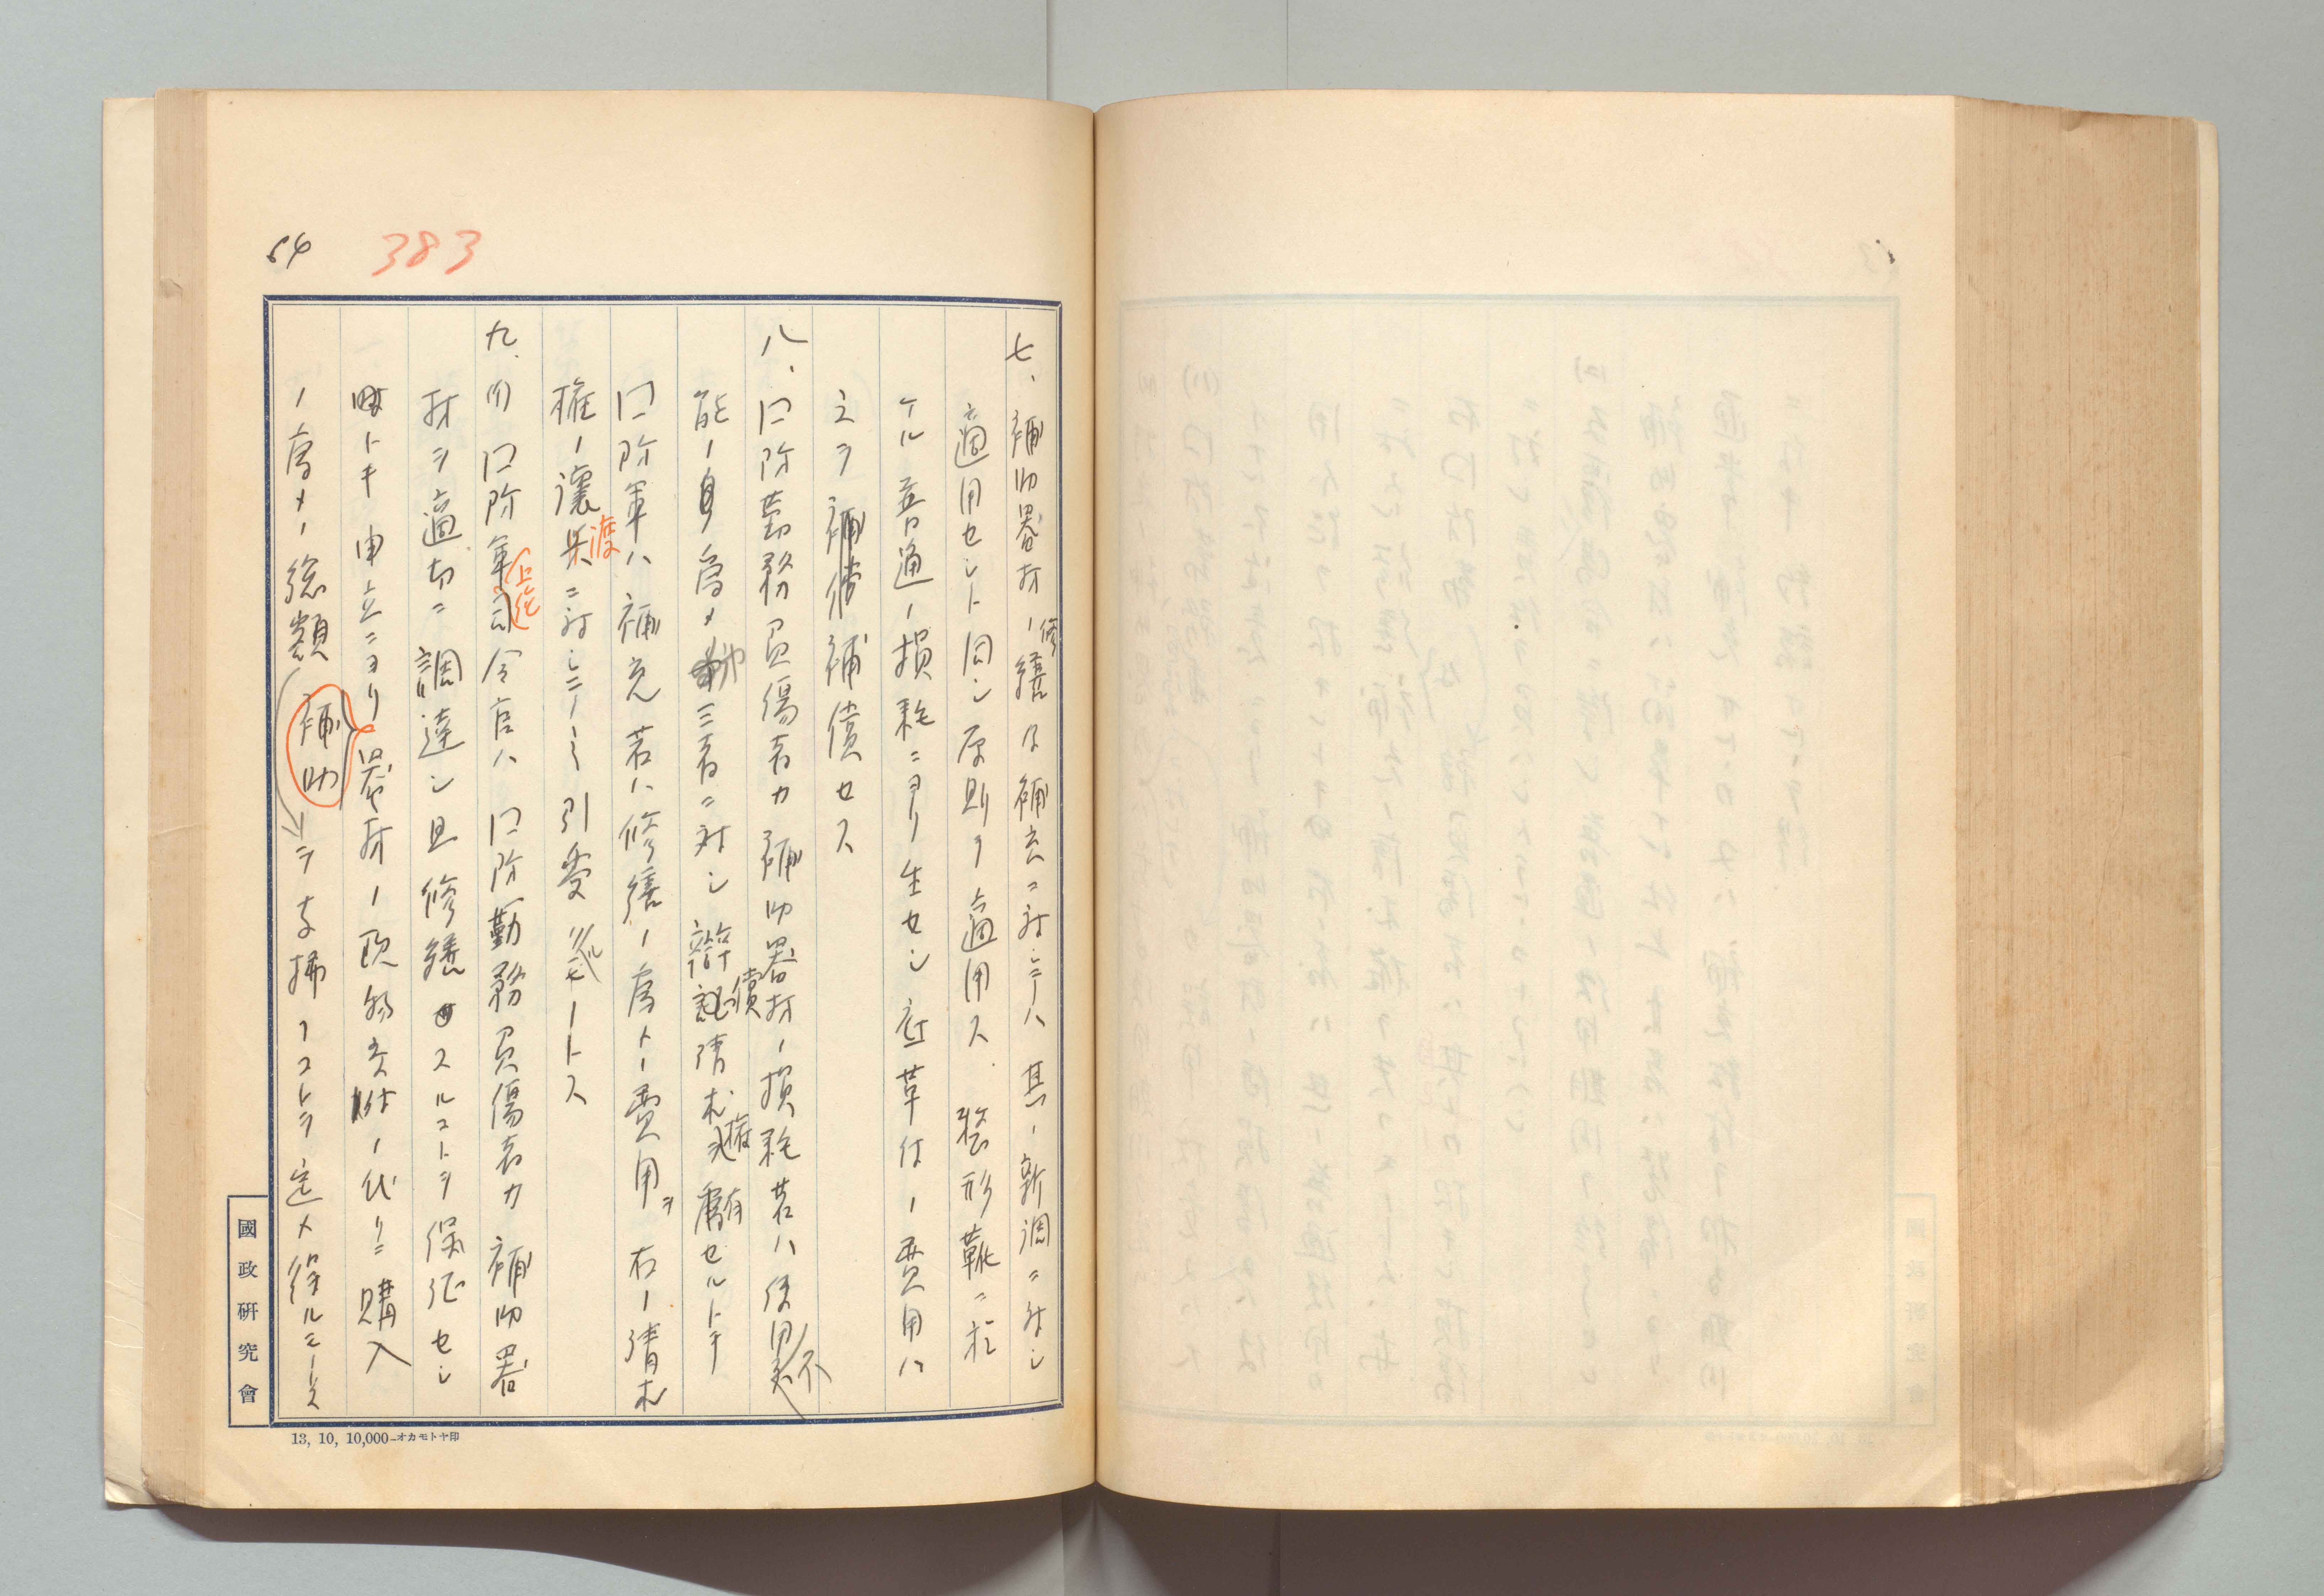 64
383
七、補助器材ノ修繕及補充ニ対シテハ其ノ新調ニ対シ
適用セシト同シ原則ヲ適用ス、整形靴ニ於
ケル普通ノ損耗ニヨリ生セシ底革付ノ費用ハ
之ヲ補償セス
八、国防勤務員傷者カ補助器材ノ損耗若ハ使用不
能ノ為メ第三者ニ対シ辨償請求権ヲ有セルトキ
国防軍ハ補充若ハ修繕ノ為メノ費用ヲ右ノ請求
権ノ譲渡ニ対シテノミ引受クルモノトス
九、国防軍司令官ハ国防勤務員傷者カ補助器
材ヲ適切ニ調達シ且修繕スルコトヲ保証セシ
時トキ申立ニヨリ器材ノ現物交附ノ代リニ購入
ノ為メノ総額補助ヲ支拂フコトヲ定メ得ルモノトス
國政研究會
13, 10, 10,000—オカモトヤ印